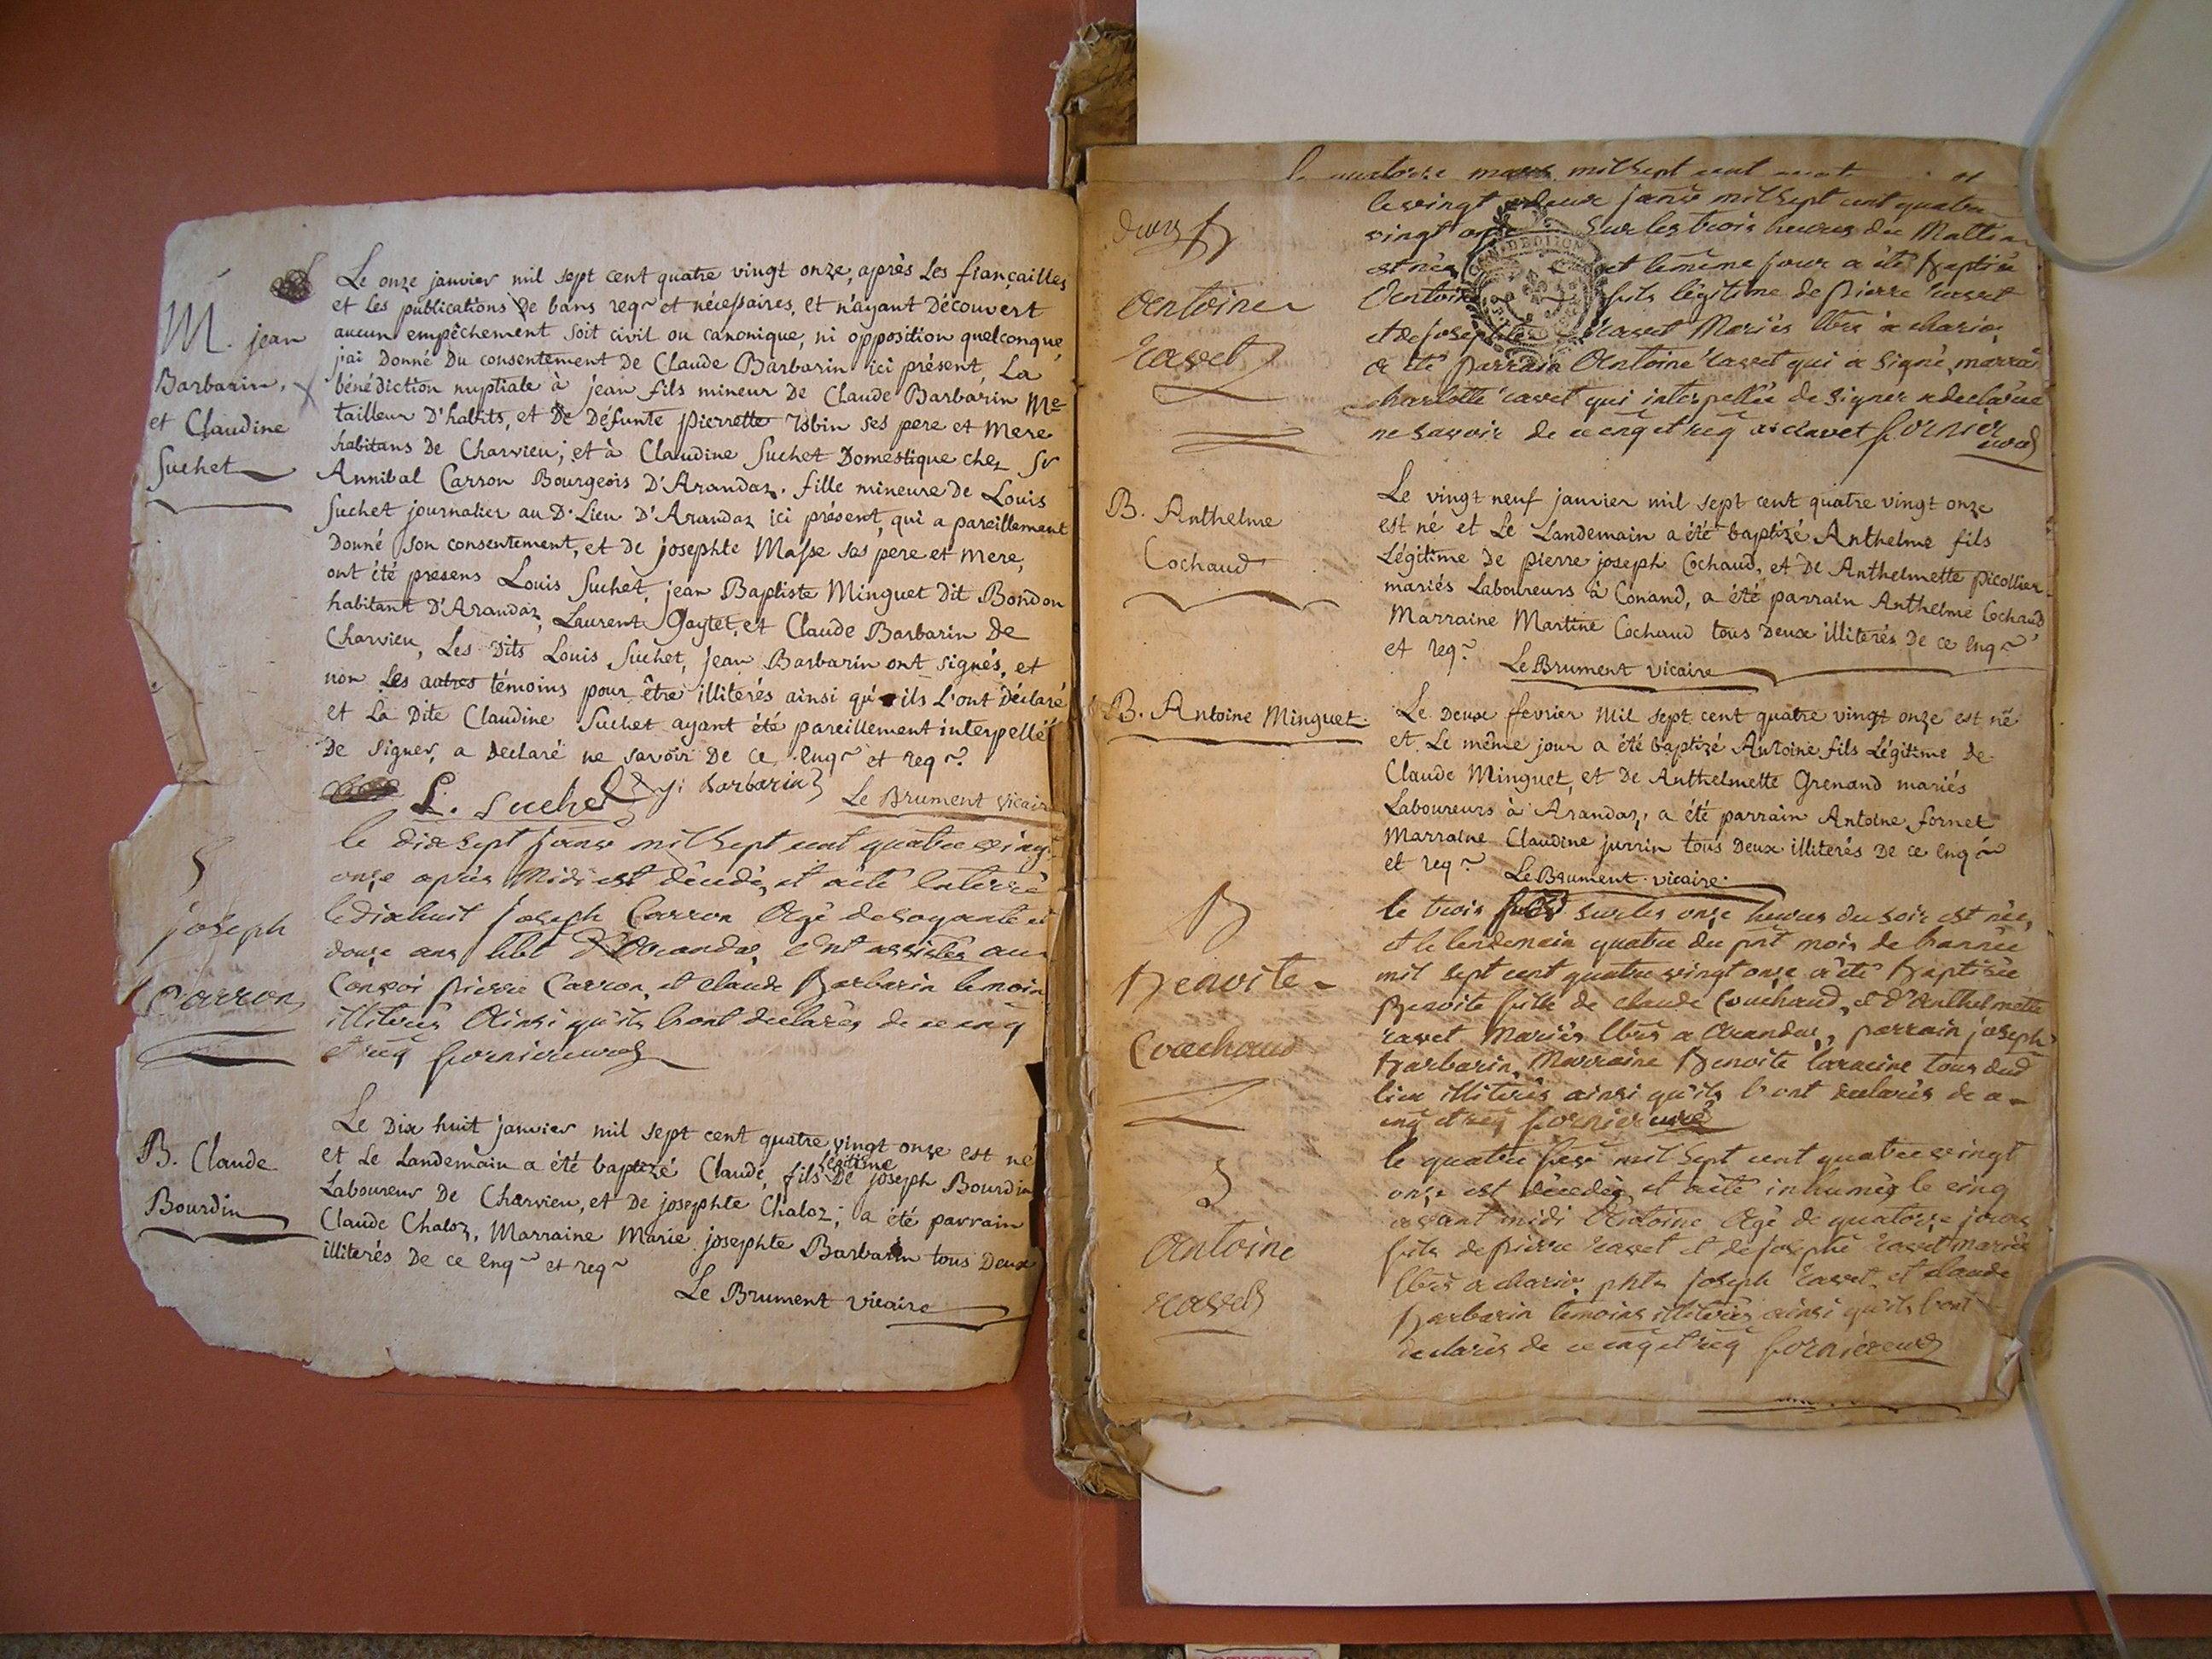 M. jean
Barbarin,
et Claudine
Suchet
Le onze janvier mil sept cent quatre vingt onze, après les fiançailles
et les publications de bans reqr et nécessaires, et n'ayant Découvert
aucun empêchement soit civil ou canonique, ni opposition quelconque,
j'ai Donné Du consentement de Claude Barbarin ici présent, La
bénédiction nuptiale à jean fils mineur De Claude Barbarin Me
tailleur D'habits, et De Défunte pierrette ses pere et Mere
habitans De Charvieu; et à Claudine Suchet Domestique chez Sr
Annibal Carron Bourgeois D'Arandaz, fille mineure de Louis
Suchet journalier au D. Lieu D'Arandaz ici présent, qui a pareillement
Donné son consentement, et De josephte Masse ses pere et mere,
ont été presens Louis Suchet, jean Baptiste Minguet Dit Bondon
habitant D'Arandaz, Laurent Gaytet, et Claude Barbarin De
Charvieu, Les Dits Louis Suchet, jean Barbarin ont signés, et
non Les autres témoins pour être illiterés ainsi qu'ils L'ont Déclaré
et La Dite Claudine Suchet ayant été pareillement interpellée
De signer, a Declaré ne savoir De ce enqr et reqr.
L. Suchet j: barbarin Le Brument vicaire
joseph
Carron
le dix sept janv mil sept cent quatre vingt
onze après Midi est décédé, et a été Enterré
le dix huit joseph Carron Agé de soyante et
douze ans hbt D'Arandas, ont assistés au
Convoi pierre Carron, et claude Barbarin temoin
illiterés Ainsi qu'ils l'ont declarés de ce enq
et req fornier curé
B. Claude
Bourdin
Le Dix huit janvier mil sept cent quatre vingt onze est né
et Le Landemain a été baptizé Claude, fils légitime De joseph Bourdin
Laboureur De Charvieu, et De josephte Chaloz; a été parrain
Claude Chaloz, Marraine Marie josephte Barbarin tous Deux
illiterés De ce enqr et reqr
Le Brument vicaire
Antoine
ravet
mars mil sept cent
le vingt deux janv mil sept cent quatre
vingt onze sur les trois heures du Mattin
est née et le même jour a été Baptisé
Antoine fils légitime de pierre ravet
et de josephte ravet Mariés hbts à chario,
a été parrain Antoine ravet qui a signé, marraine
charlotte ravet qui interpellée de signer a declarée
ne savoir de ce enq et req a ravet fornier
curé
B. Anthelme
Cochaud
Le vingt neuf janvier mil sept cent quatre vingt onze
est né et Le Landemain a été baptizé Anthelme fils
Légitime De pierre joseph Cochaud, et De Anthelmette picollier
mariés Laboureurs à Conand, a été parrain Anthelme Cochaud
Marraine Martine Cochaud tous Deux illiterés De ce enqr
et reqr. Le Brument vicaire
B. Antoine Minguet
Le Deux fevrier Mil sept cent quatre vingt onze est né
et Le même jour a été baptizé Antoine fils Légitime De
Claude Minguet, et De Anthelmette Grenand mariés
Laboureurs à Arandaz, a été parrain Antoine fornet
Marraine Claudine jurrin tous Deux illiterés De ce enqr
et reqr Le Brument vicaire
B
Benoite
Couchoud
le trois sur les onze heures du soir est née,
et le lendemain quatre du prst mois de l'année
mil sept cent quatre vingt onze a été Baptisée
Benoite fille de claude Couchoud, et d'Anthelmette
ravet Mariés hbts a Arandas, parrain joseph
Barbarin, Marraine Benoite laracine tous dud
lieu illiterés ainsi qu'ils l'ont declarés de ce
enq et req fornier curé
Antoine
ravet
le quatre fevr mil sept cent quatre vingt
onze est décedé, et a été inhumé le cinq
avant midi Antoine Agé de quatorze jours
fils de pierre ravet et de josephte ravet mariés
hbts a chario, pnts joseph ravet et claude
Barbarin temoins illiterés ainsi qu'ils l'ont
declarés de ce enq et req fornier curé